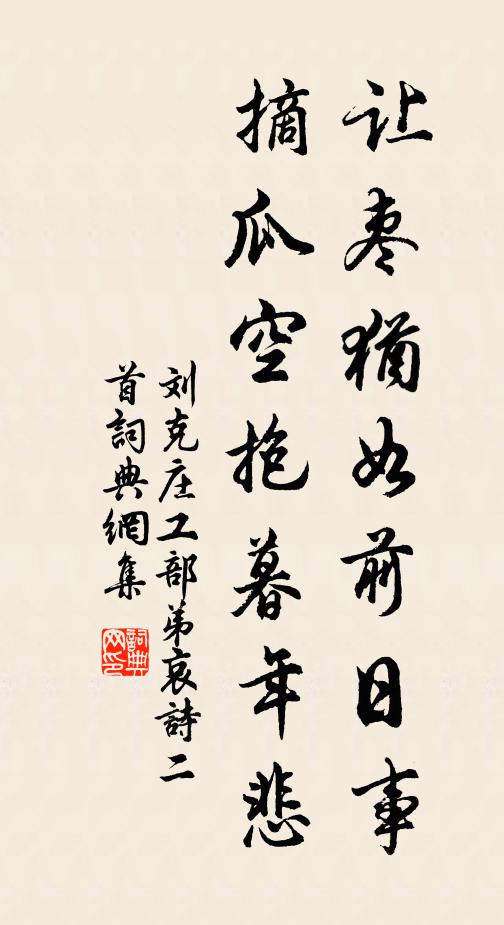 让枣犹如前日事
摘瓜空抱暮年悲
刘克庄工部弟哀詩二
首詞典網集
詞典网印